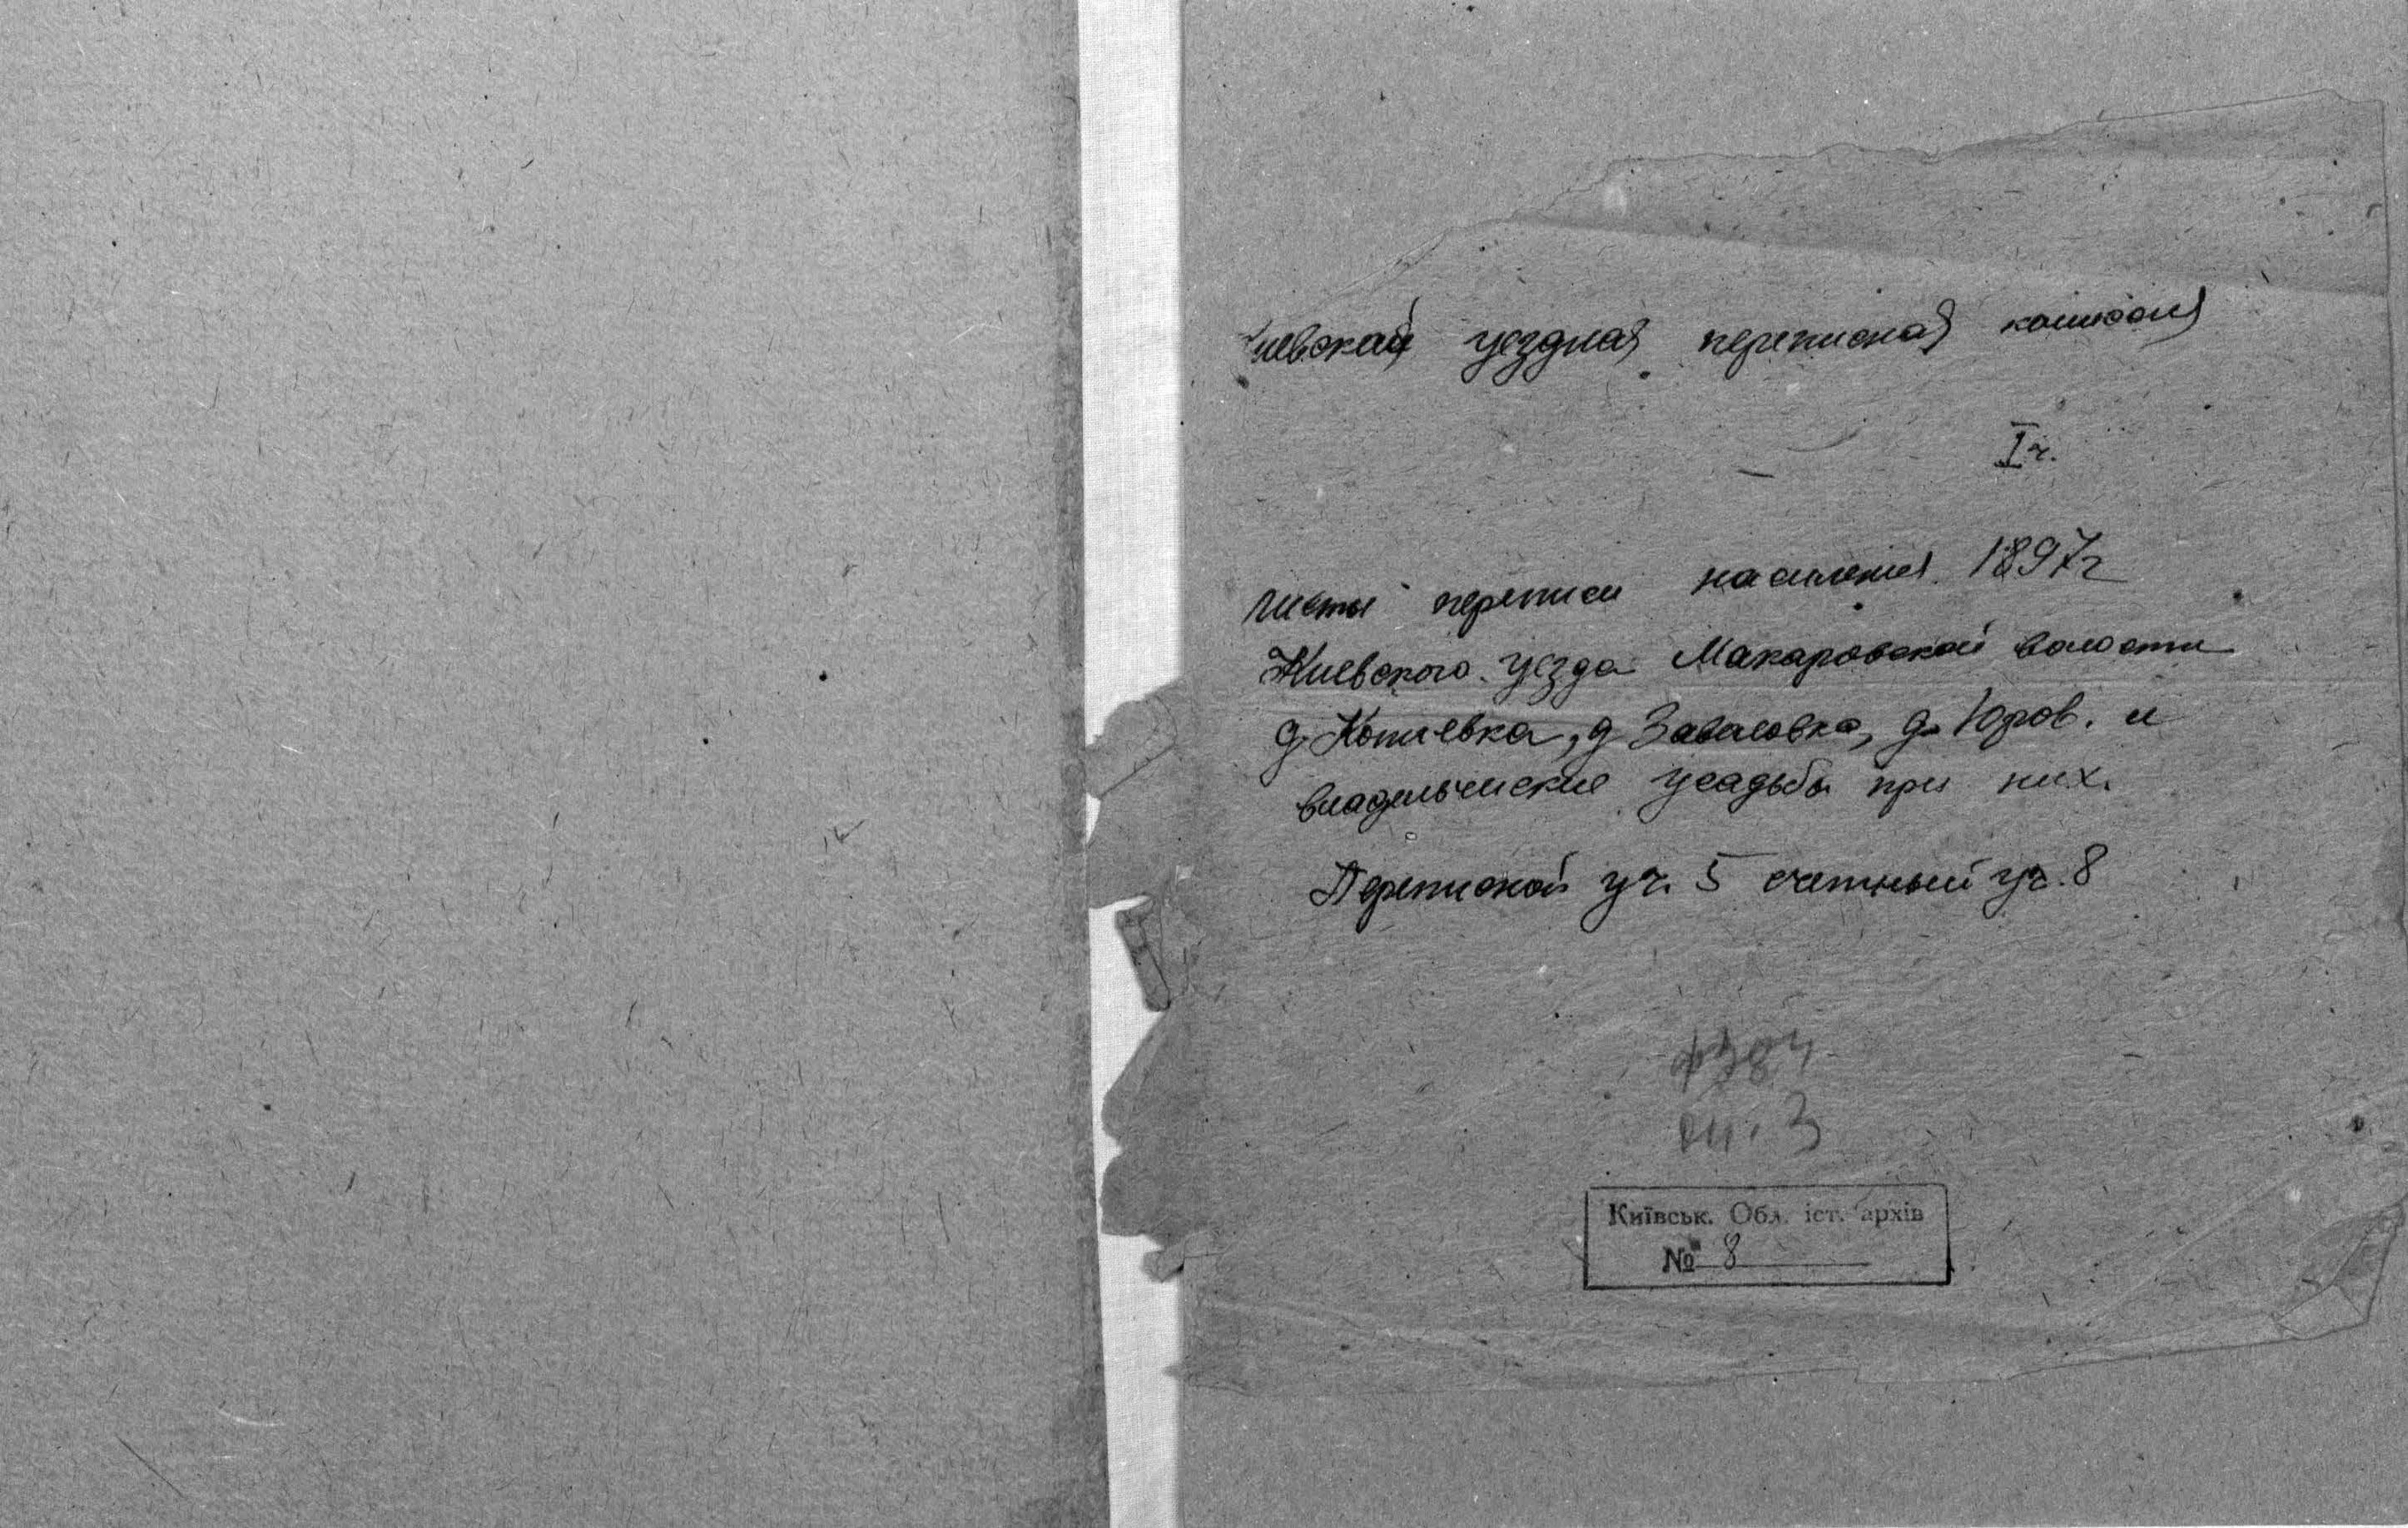 Киевская уездная переписная комиссия
I ч.
Листы переписи населения 1897 г
Киевского уезда Макаровской волости
д. Копиевка, д. Заваловка, д. Юров. и
владельческие усадьбы при них.
Переписной уч. 5 счетный уч. 8
ф 384
оп. 3
Київськ. Обл. іст. архів
№ 8